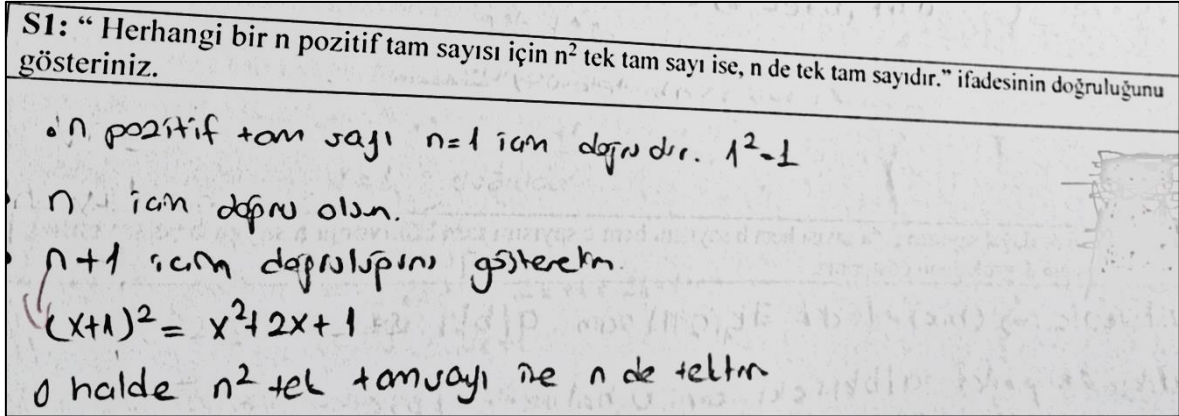 S1: “ Herhangi bir n pozitif tam sayısı için n² tek tam sayı ise, n de tek tam sayıdır.” ifadesinin doğruluğunu
gösteriniz.
n pozitif tam sayı n=1 için doğrudur. 1²=1
n için doğru olsun.
n+1 için doğruluğunu gösterelim.
(x+1)² = x²+2x+1
O halde n² tek tamsayı ise n de tektir